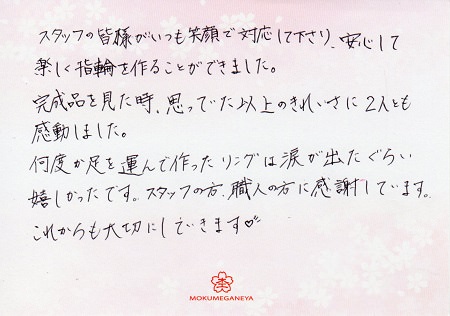 スタッフの皆様がいつも笑顔で対応して下さり、安心して
楽しく指輪を作ることができました。
完成品を見た時、思っていた以上のきれいさに2人とも
感動しました。
何度か足を運んで作ったリングは涙が出たぐらい
嬉しかったです。スタッフの方、職人の方に感謝しています。
これからも大切にしていきます♡
MOKUMEGANEYA